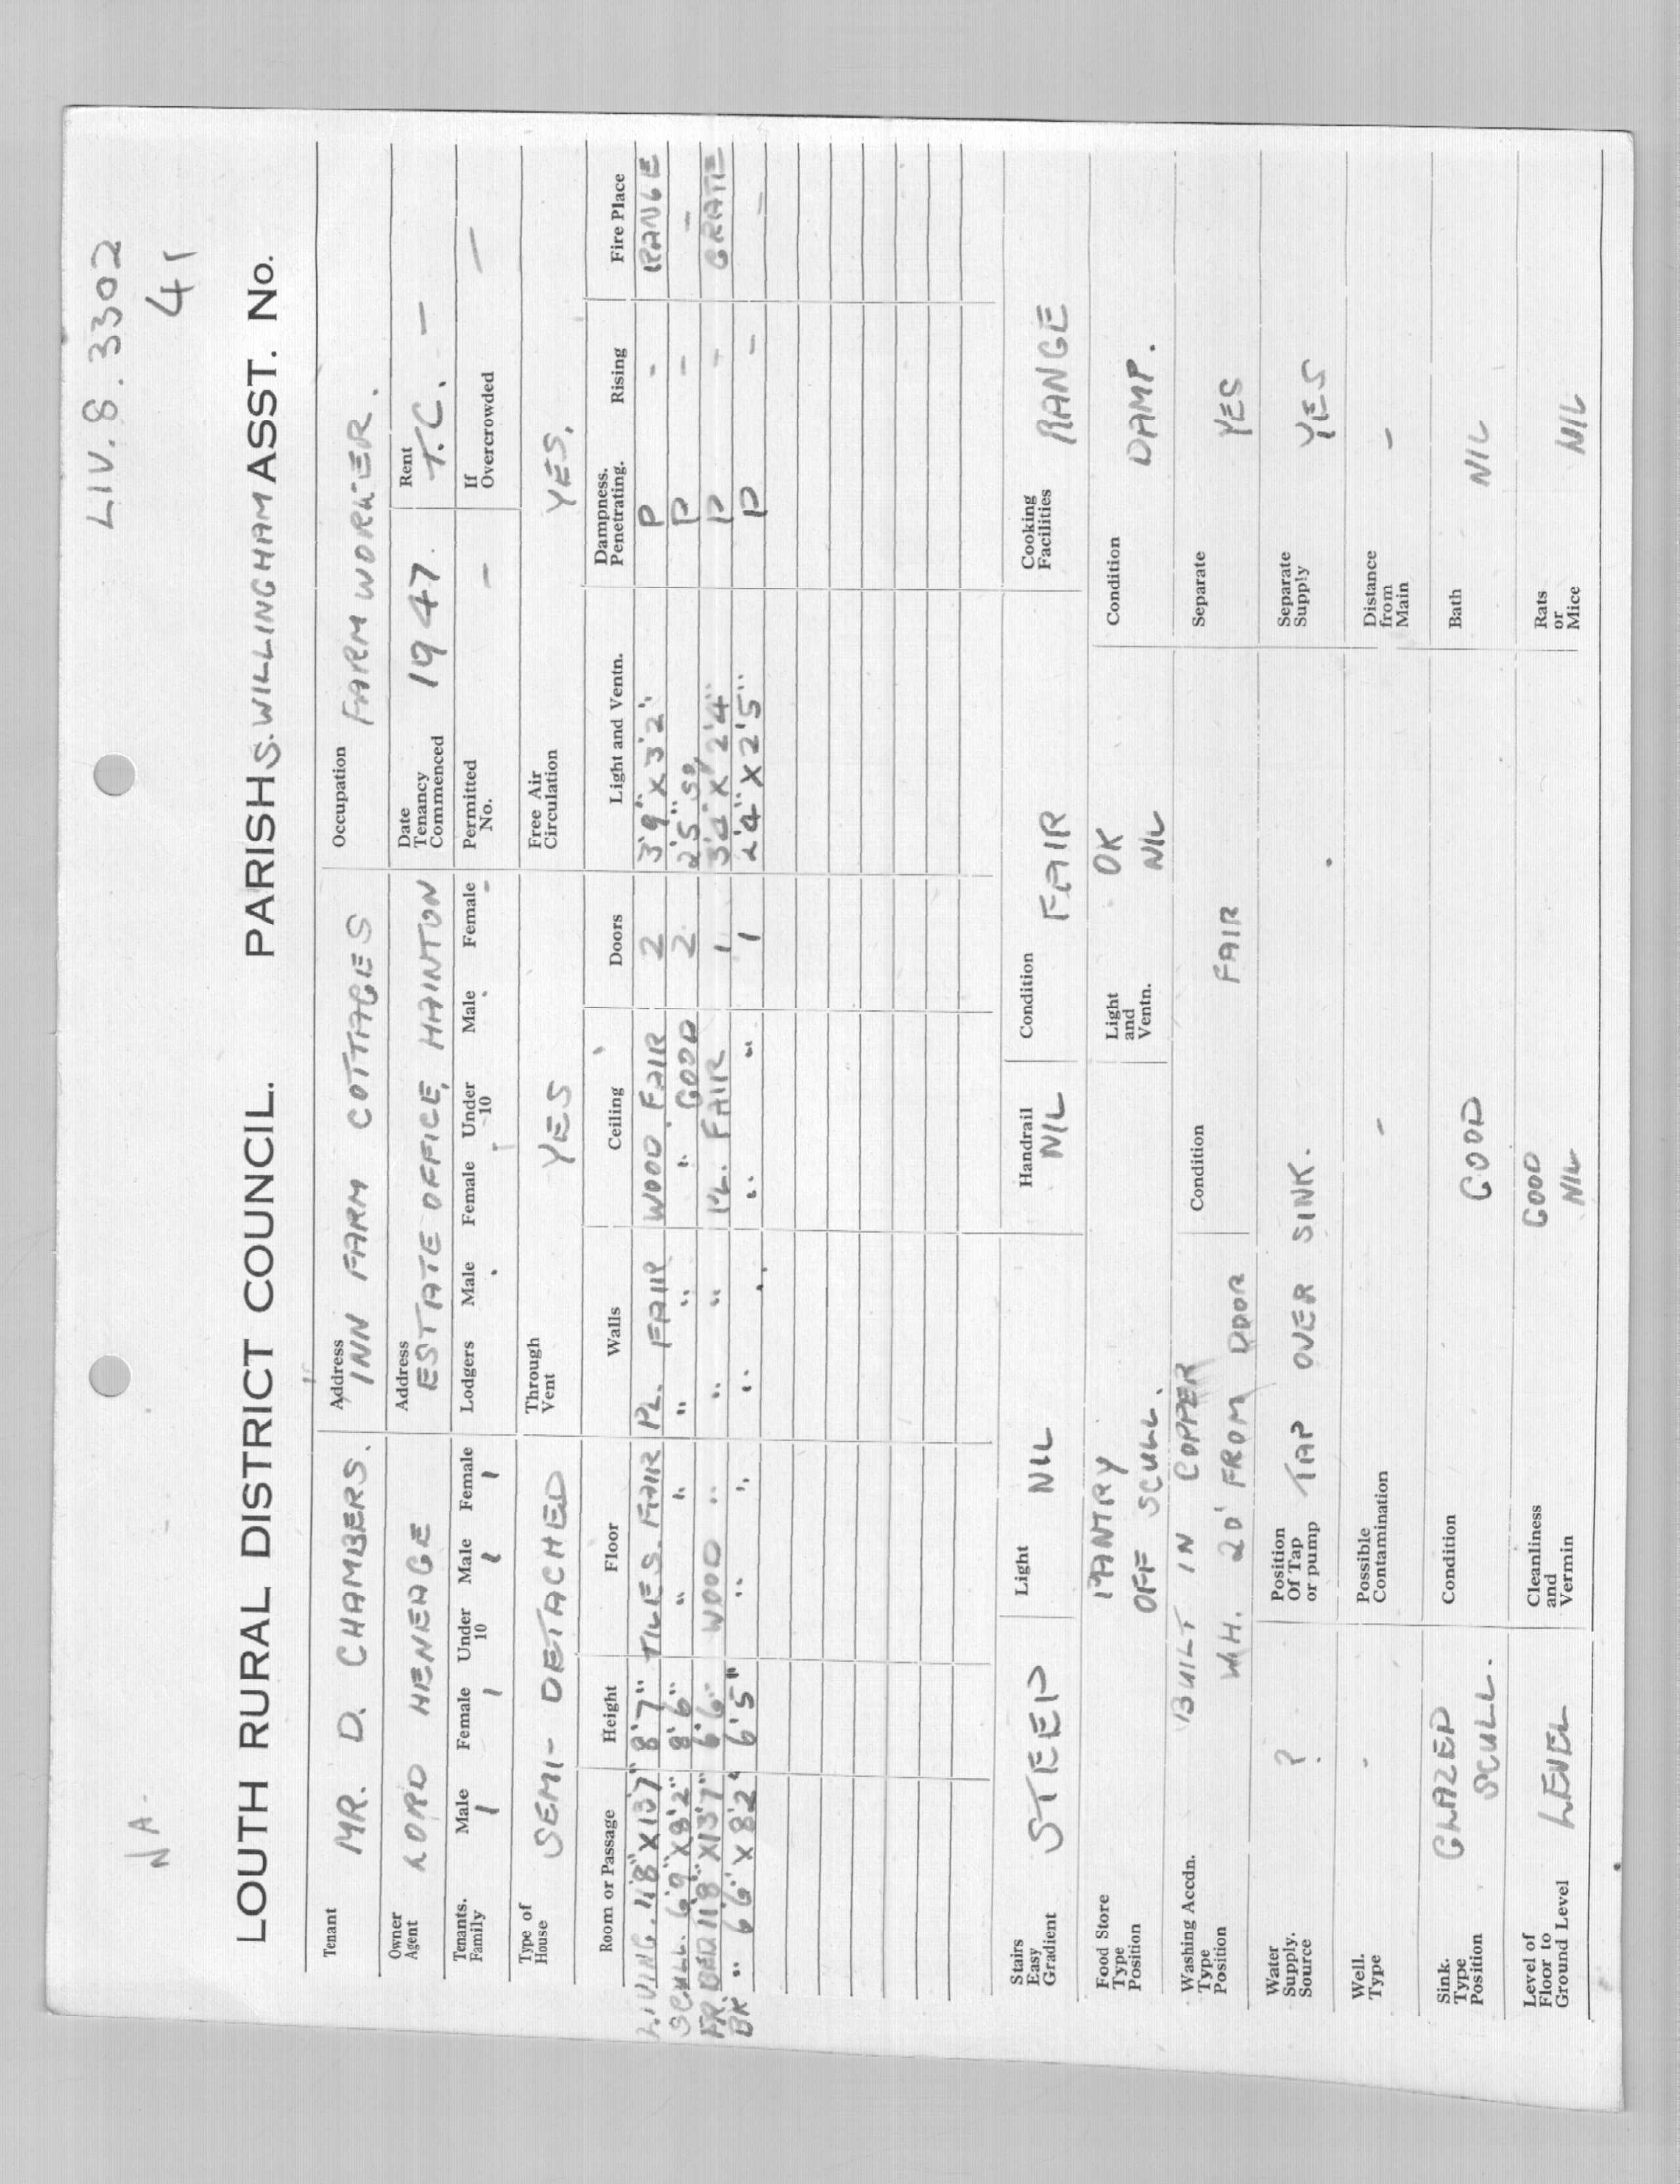 N A.
LIV. 8. 3302
41
LOUTH RURAL DISTRICT COUNCIL. PARISH S. WILLINGHAM ASST. No.
Tenant MR. D. CHAMBERS. Address INN FARM COTTAGES Occupation FARM WORKER.
Owner Agent LORD HENEAGE Address ESTATE OFFICE, HAINTON Date Tenancy Commenced 1947. Rent T.C. –
Tenants. Family Male 1 Female 1 Under 10 Male 1 Female 1 Lodgers Male . Female Under 10 Male . Female - Permitted No. – If Overcrowded –
Type of House SEMI-DETACHED Through Vent YES Free Air Circulation YES.
Room or Passage Height Floor Walls Ceiling Doors Light and Ventn. Dampness. Penetrating. Rising Fire Place
LIVING. 11'8" X 13'7" 8'7" TILES. FAIR PL. FAIR WOOD. FAIR 2 3'9" X 3'2" P - RANGE
SCULL. 6'9" X 8'2" 8'6" " " " " " GOOD 2 2'5" SQ. P - -
FR. BED 11'8" X 13'7" 6'6" WOOD " " " PL. FAIR 1 3'4" X 2'4" P - GRATE
BK " 6'6" X 8'2" 6'5" " " " " " " 1 2'4" X 2'5" P - -
Stairs Easy Gradient STEEP Light NIL Handrail NIL Condition FAIR Cooking Facilities RANGE
Food Store Type Position PANTRY OFF SCULL. Light and Ventn. OK NIL Condition DAMP.
Washing Accdn. Type Position BUILT IN COPPER W.H. 20' FROM DOOR Condition FAIR Separate YES
Water Supply. Source ? Position Of Tap or pump TAP OVER SINK. Separate Supply YES
Well. Type - Possible Contamination - Distance from Main -
Sink. Type Position GLAZED SCULL. Condition GOOD Bath NIL
Level of Floor to Ground Level LEVEL Cleanliness and Vermin GOOD NIL Rats or Mice NIL